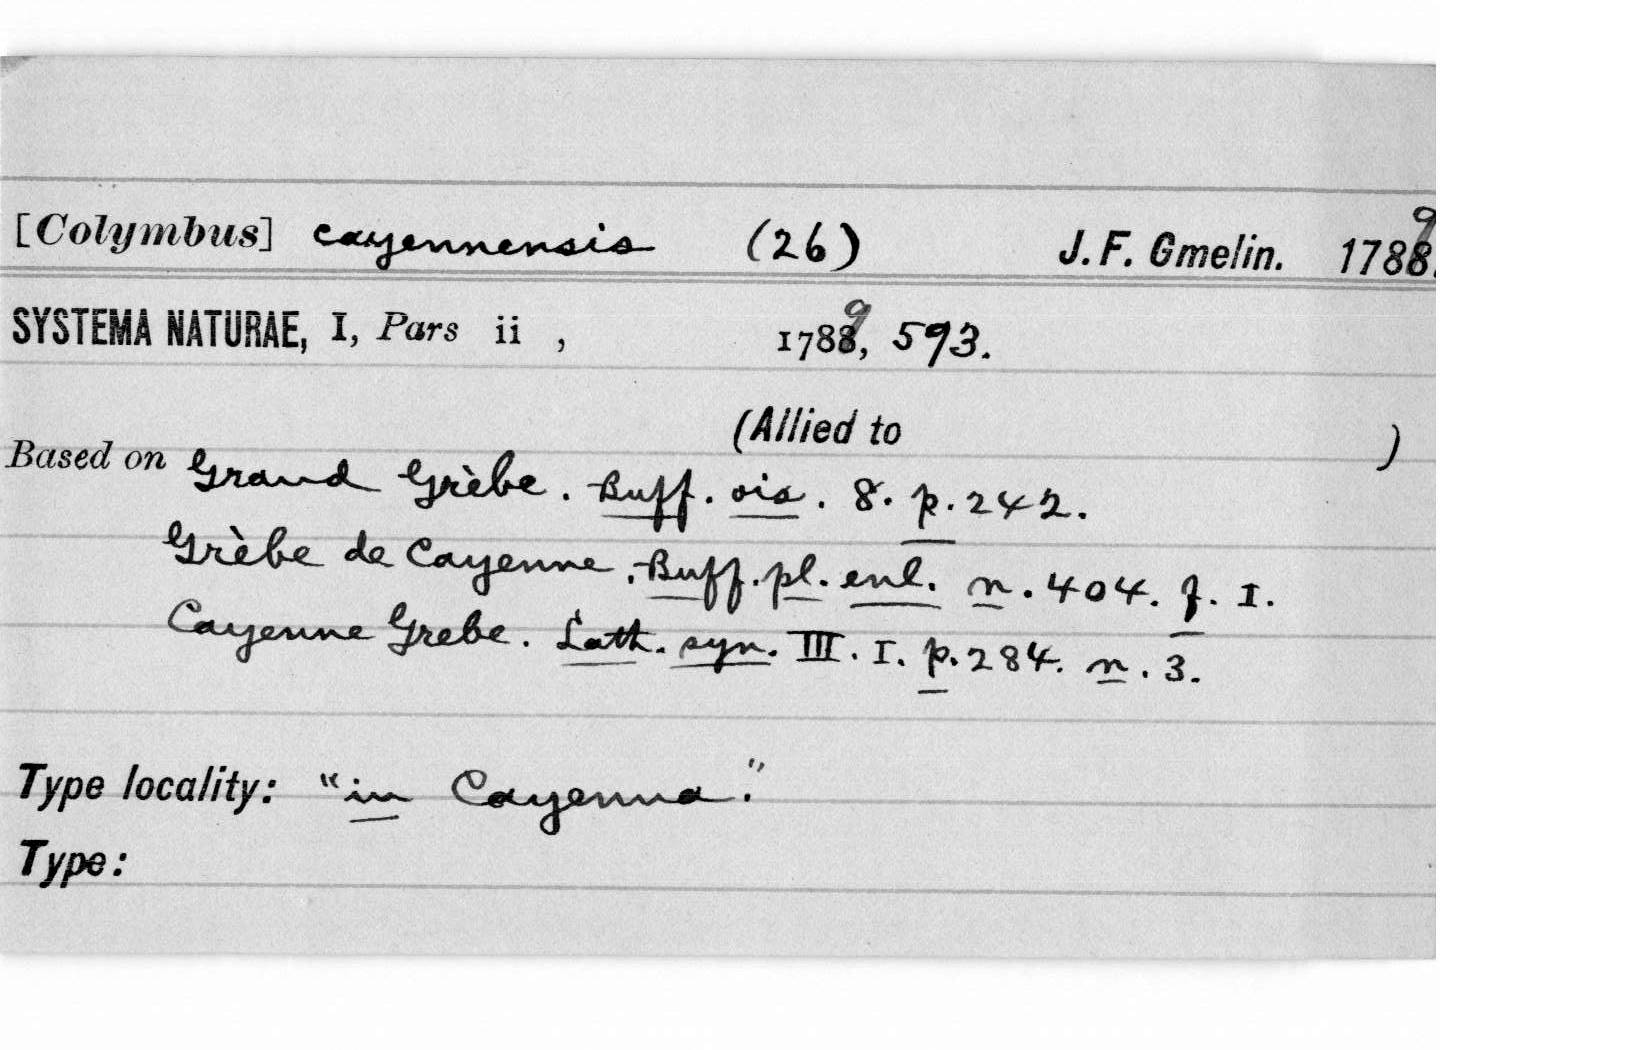 [Colymbus] cayennensis (26) J. F. Gmelin. 1789.
SYSTEMA NATURAE, I, Pars ii , 1789, 593.
(Allied to )
Based on Grand Grèbe. Buff. ois. 8. p. 242.
Grèbe de Cayenne. Buff. pl. enl. n. 404. f. I.
Cayenne Grebe. Lath. syn. III. I. p. 284. n. 3.
Type locality: "in Cayenna."
Type: